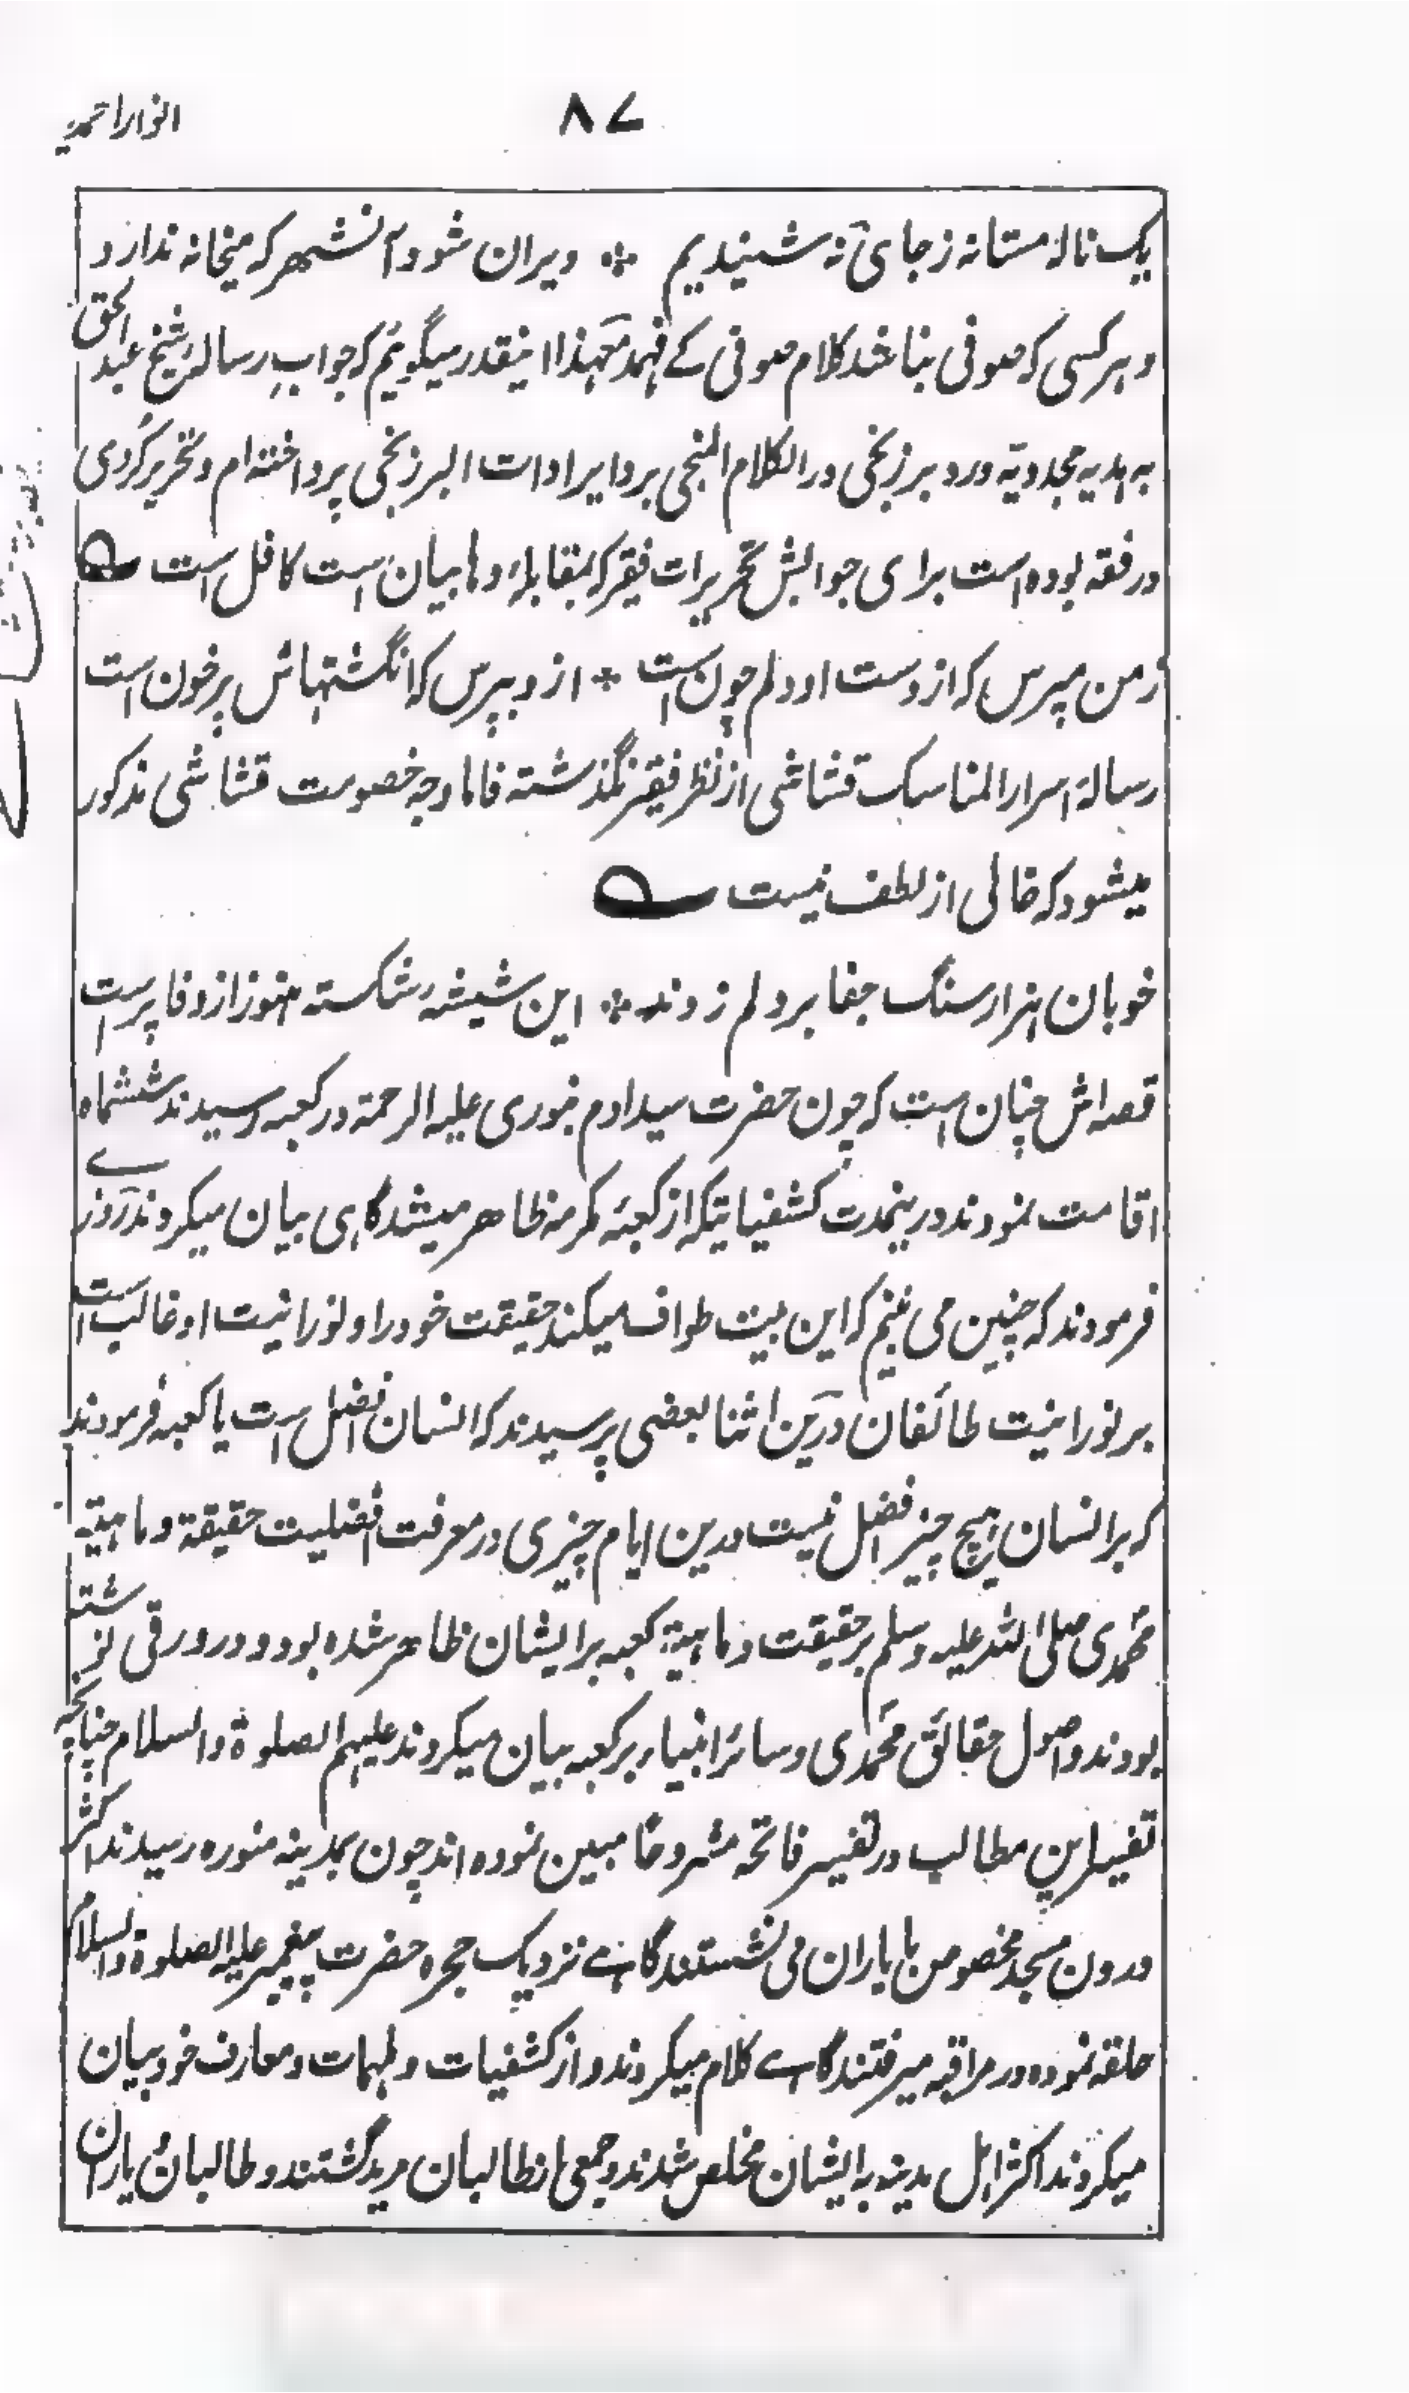 انوار احمدیہ
۸۷
یک نالۂ مستانہ ز جای نہ شنیدیم ٭ ویران شود آنشہر کہ میخانہ ندارد
و ہر کسی کہ صوفی نباشد کلام صوفی کے فہمد معہذا اینقدر میگویم کہ جواب رسالۂ شیخ عبد الحق
بہ ہدیہ مجددیہ و رد برزنجی در الکلام المنجی برد ایرادات البرزنجی پرداختہ ام و تحریر کردی
در فقہ بودہ است برای جوابش تحریرات فقیر کہ بمقابلۂ وہابیان است کافل است
ز من مپرس کہ از دست او دلم چون است ٭ از و بپرس کہ انگشتہاش پر خون است
رسالۂ اسرار المناسک قشاشی از نظر فقیر نگذشتہ فاما وجہ خصومت قشاشی مذکور
میشود کہ خالی از لطف نیست
خوبان ہزار سنگ جفا بر دلم زدند ٭ این شیشۂ شکستہ ہنوز از وفا پرست
قصہ اش چنان است کہ چون حضرت سید ادم بنوری علیہ الرحمۃ در کعبہ رسیدند ششماہ
اقامت نمودند درینمدت کشفیاتیکہ از کعبۂ مکرمہ ظاهر میشد گاہی بیان میکردند روزے
فرمودند کہ چنین می بینم کہ این بیت طواف میکند حقیقت خود را و نورانیت او غالب است
بر نورانیت طائفان درین اثنا بعضی پرسیدند کہ انسان افضل است یا کعبہ فرمودند
کہ بر انسان ہیچ چیز افضل نیست درین ایام چیزی در معرفت افضلیت حقیقۃ و ماہیۃ
محمدی صلی اللہ علیہ وسلم بر حقیقت و ماہیۃ کعبہ بر ایشان ظاهر شدہ بود و در ورقی نوشتہ
بودند و اصول حقائق محمدی و سائر انبیاء بر کعبہ بیان میکردند علیہم الصلوۃ والسلام چنانچہ
تفصیل این مطالب در تفسیر فاتحہ مشروحا مبین نمودہ اند چون بمدینہ منورہ رسیدند اکثر
درون مسجد مخصوص با یاران می نشستند گاہے نزدیک حجرہ حضرت پیغمبر علیہ الصلوۃ والسلام
حلقہ نمودہ در مراقبہ میرفتند گاہے کلام میکردند و از کشفیات و ملہمات و معارف خود بیان
میکردند اکثر اہل مدینہ بہ ایشان مخلص شدند و جمعی از طالبان مرید گشتند و طالبان و یاران